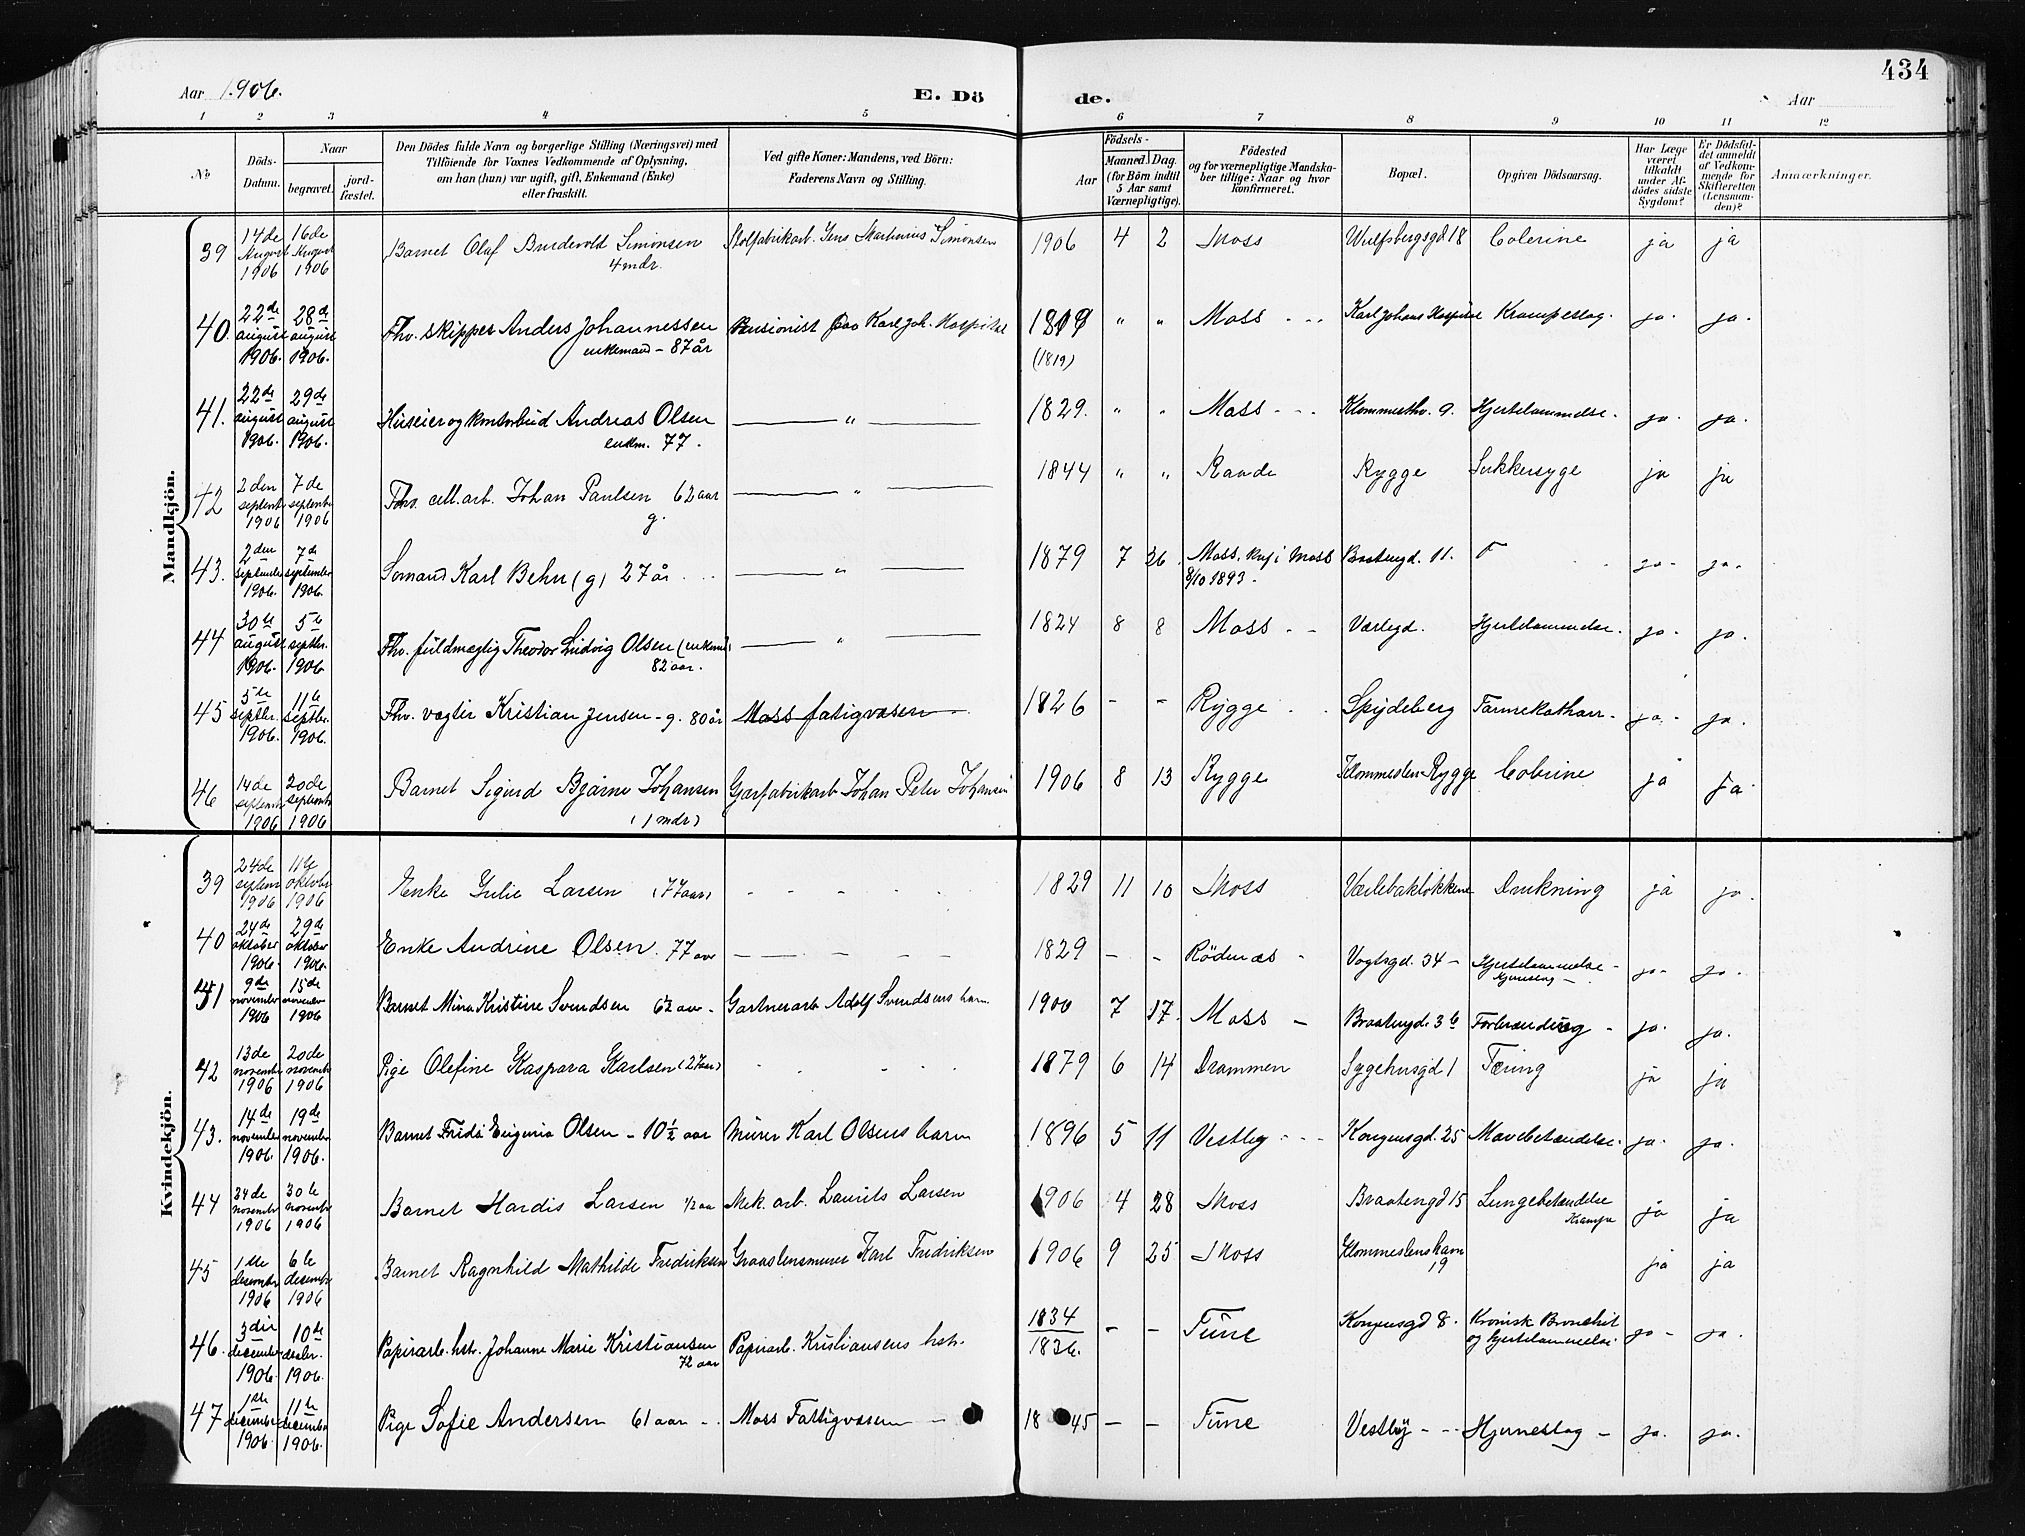 434
Aar 1906. E. Dö de. Aar
1 2 3 4 5 6 7 8 9 10 11 12
No
Döds-Datum.
Naar
begravet.
jord-fæstet.
Den Dödes fulde Navn og borgerlige Stilling (Næringsvei) med
Tilföiende for Voxnes Vedkommende af Oplysning,
om han (hun) var ugift, gift, Enkemand (Enke)
eller fraskilt.
Ved gifte Koner: Mandens, ved Börn:
Faderens Navn og Stilling.
Födsels-
Aar
Maaned. Dag.
(for Börn indtil
5 Aar samt
Værnepligtige).
Födested
og for værnepligtige Mandska-
ber tillige: Naar og hvor
konfirmeret.
Bopæl.
Opgiven Dödsaarsag.
Har Læge
været
tilkaldt
under Af-
dödes sidste
Sygdom?
Er Dödsfal-
det anmeldt
af Vedkom-
mende for
Skifteretten
(Lensman-
den)?
Anmærkninger.
Mandkjön.
39 14de August 1906 16de August 1906 Barnet Olaf Simonsen 4 mdr. Jens Martinius Simonsen 1906 4 2 Moss Wulfsbergsgd 18 Colerine ja ja
40. 22de august 1906. 28de august 1906. Fhv. skipper Anders Johannessen enkemand - 87 år Pensionist paa Karl Joh. Hospital 1819 (1819) " " Moss Karl Johans Hospital Krampeslag. ja. ja.
41. 22de august 1906. 29de august 1906. Huseier og kontorbud Andreas Olsen enkm. 77. " 1829. " " Moss Klommestho. 9. Hjertelammelse. ja. ja.
42 2den septembr 1906 7de septembr 1906 Fhv. cell.arb. Johan Paulsen 62 aar g. " 1844 " " Raade Rygge Sukkersyge ja ja
43. 2den september 1906. 7de september 1906. Sømand Karl Behn (g) 27 år " 1879 7 26. Moss. Kuf i Moss 8/10 1893. Braatengd. 11. ja. ja.
44 30te august 1906. 5te septbr. 1906 Fhv. fuldmægtig Theodor Ludvig Olsen (enkemd) 82 aar. " 1824 8 8 Moss Værlegd. Hjertelammelse. ja. ja.
45 5te septbr. 1906. 11te septbr. 1906. Fhv. vægter Kristian Jensen - g. 80 år Moss fatigvæsen 1826 - - Rygge Spydeberg Tarmekatharr. ja. ja.
46 14de septembr 1906 20de septembr 1906 Barnet Sigurd Bjarne Johansen (1 mdr) Gjærfabrikarb Johan Peter Johansen 1906 8 13 Rygge Klommesten Rygge Colerine ja ja
Kvindekjön.
39 24de septem 1906 11te oktobr 1906 Enke Julie Larsen (77 aar) 1829 11 10 Moss Værlebakløkkene Drukning ja ja.
40 24de oktober 1906. 29de oktober 1906. Enke Andrine Olsen. 77 aar 1829 - - Rødenæs Vogtsgd. 34 - Hjertelammelse - ja. ja.
41 9de november 1906 15de november 1906 Barnet Mina Kristine Svendsen 6½ aar - Gartnerarb. Adolf Svendsens barn 1900 7 17. Moss - Braatengd. 36 Forbrænding - ja. ja.
42 13de novembr 1906 20de novembr 1906 Pige Olefine Kaspara Karlsen (27 aar) 1879 6 14 Drammen Sygehusgd 1 Tæring ja ja
43. 14de november 1906. 19de november 1906. Barnet Frida Eugenia Olsen - 10½ aar Murer Karl Olsens barn 1896 5 11 Vestby Kongensgd. 25 Mavebetændelse. ja. ja.
44 24de novembr 1906 30te novembr 1906 Barnet Hardis Larsen 1/2 aar Mek. arb. Laurits Larsen 1906 4 28 Moss Braatengd 15 Lungebetændelse Krampe ja ja
45 1ste desembr 1906 6te desembr 1906 Barnet Ragnhild Mathilde Fredriksen Graastensmurer Karl Fredriksen 1906 9 25 Moss Klommestenshavn 19 ja ja
46. 3die december 1906. 10de decbr. 1906. Papirarb. hstr. Johanne Marie Kristiansen 72 aar Papirarb. Kristiansens hstr. 1834 1836. - - Tune Kongensgd 8. Kronisk Bronchit og Hjertelammelse ja - ja.
47 1ste december 1906. 11te december 1906. Pige Sofie Andersen 61 aar - Moss Fattigvæsen - 1845 - - Tune Vestby - Hjerneslag - ja. ja.